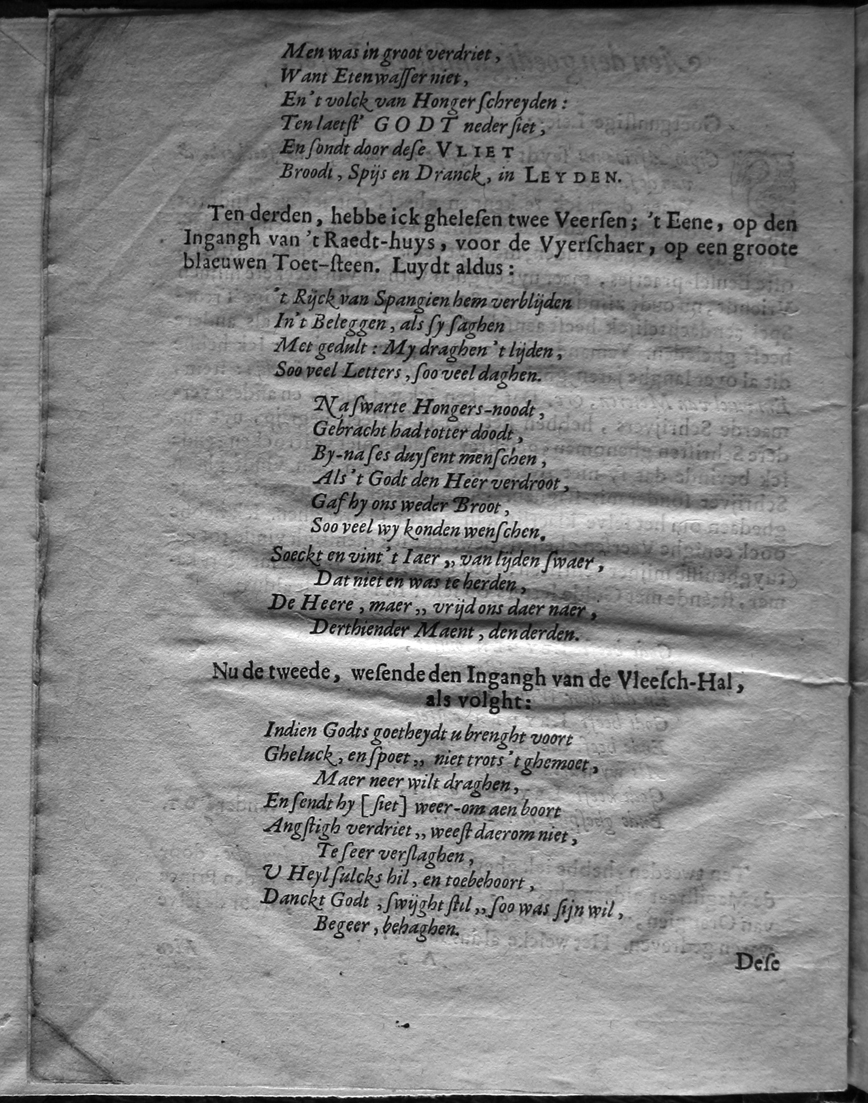 Men was in groot verdriet,
Want Eten wasser niet,
En't volck van Honger ſchreyden:
Ten laetſt' GODT neder ſiet,
En ſondt door deſe VLIET
Broodt, Spijs en Dranck, in LEYDEN.
Ten derden, hebbe ick gheleſen twee Veerſen; 't Eene, op den
Ingangh van 't Raedt-huys, voor de Vyerſchaer, op een groote
blaeuwen Toet-ſteen. Luydt aldus:
't Rijck van Spangien hem verblijden
In't Beleggen, als ſy ſaghen
Met gedult: My draghen 't lijden,
Soo veel Letters, ſoo veel daghen.
Na ſwarte Hongers-noodt,
Gebracht had totter doodt,
By-na ſes duyſent menſchen,
Als 't Godt den Heer verdroot,
Gaf hy ons weder Broot,
Soo veel wy konden wenſchen.
Soeckt en vint 't Iaer,, van lijden ſwaer,
Dat niet en was te herden,
De Heere, maer,, vrijd ons daer naer,
Derthiender Maent, den derden.
Nu de tweede, weſende den Ingangh van de Vleeſch-Hal,
als volght:
Indien Godts goetheydt u brenght voort
Gheluck, en ſpoet,, niet trots 't ghemoet,
Maer neer wilt draghen,
En ſendt hy [ſiet] weer-om aen boort
Angſtigh verdriet,, weeſt daerom niet,
Te ſeer verſlaghen,
V Heyl ſulcks hil, en toebehoort,
Danckt Godt, ſwijght ſtil,, ſoo was ſijn wil,
Begeer, behaghen.
Deſe